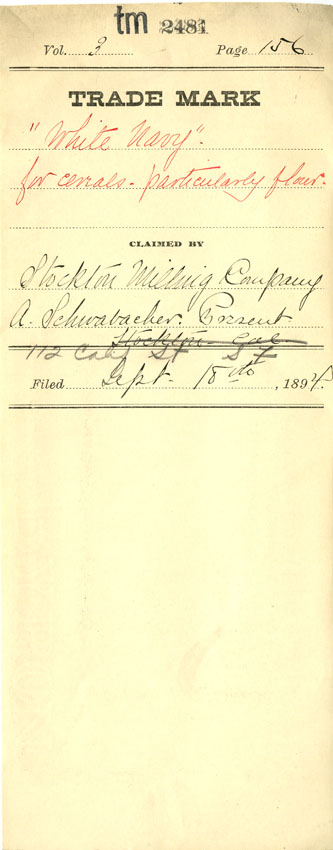 tm 2481
Vol. 3 Page 156
TRADE MARK
"White Navy".
for cereals - particularly flour.
CLAIMED BY
Stockton Milling Company
A. Schwabacher. Present
Stockton Cal
112 Calf St S F
Filed Sept. 18th, 1894.